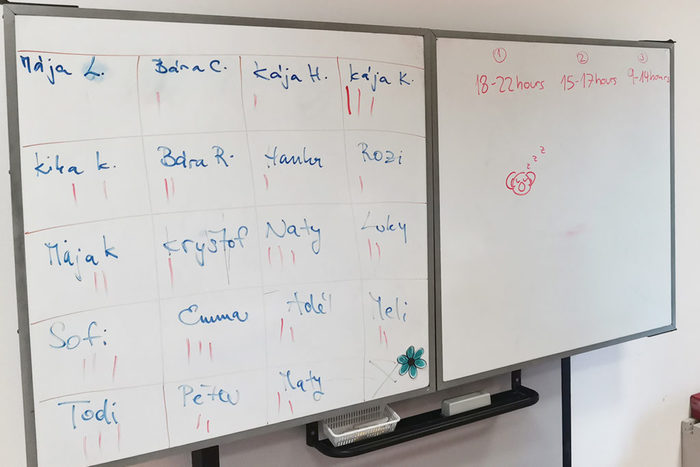 Mája L. Bára C. Kája H. Kája K.
Kika K. Bára R. Hanka Rozi
Mája K Kryštof Naty Luky
Sofi Emma Adél Meli
Todi Maty
① ② ③
18-22hours 15-17hours 9-14hours
z z z